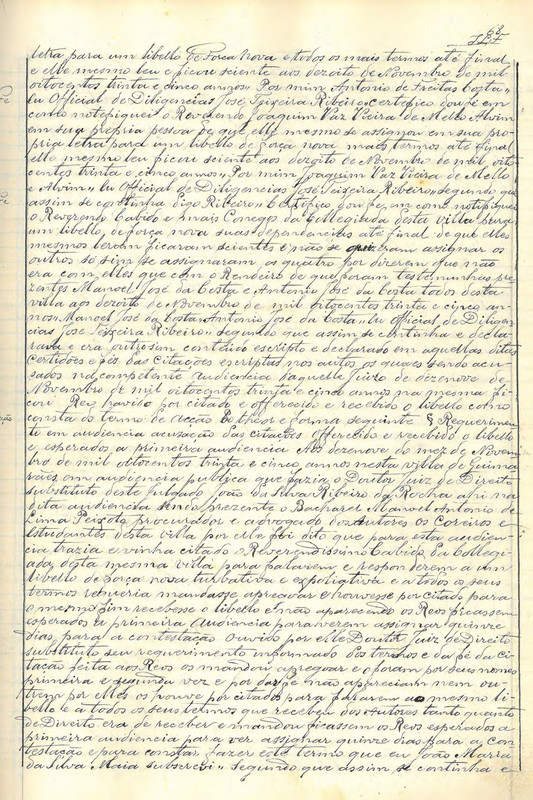 68
letra para um libello de Força Nova e todos os mais termos até final
e elle mesmo leu e ficou sciente aos dezoito de Novembro de mil
oitocentos trinta e cinco annos. Por mim Antonio de Freitas Costa
Eu Official de Diligencias José Teixeira Ribeiro. Certefico dou fé em
como notefiquei o Reverendo Joaquim Vaz Vieira de Mello Alvim
em sua propria pessoa de que elle mesmo se assignou em sua pro-
pria letra para um libello de força nova mais termos até final
elle mesmo leu ficou sciente aos dezoito de Novembro de mil oito
centos trinta e cinco annos. Por mim Joaquim Vaz Vieira de Mello
e Alvim. Eu Official de Diligencias José Teixeira Ribeiro. segundo que
assim se continha digo Ribeiro. Certifico dou fé, em como notifiquei
o Reverendo Cabido e mais Conegos da Collegiada desta villa para
um libello, de força nova suas dependencias até final de que elles
mesmos leram ficaram scientes e não se quizeram assignar os
outros só sim se assignaram os quatro por dizerem que não
era com elles que com o Rendeiro de que foram testemunhas pre
zentes Manoel José da Costa e Antonio José da Costa todos desta
villa aos dezoito de Novembro de mil oitocentos trinta e cinco an-
nos. Manoel José da Costa. Antonio José da Costa. Eu Official de Diligen
cias José Teixeira Ribeiro. segundo que assim se continha e decla
rava e era outrosim contido escripto e declarado em aquellas ditas
Certidões e fés das Citações escriptas nos autos os quaes sendo acu-
sados na competente audiencia daquelle Juizo de dezenove de
Novembro de mil oitocentos trinta e cinco annos na mesma fi-
cou Reo, havido por citado e offerecido e recebido o libello como
consta do termo de acção do theor e forma seguinte § Requerimen
to em audiencia acusação das citações offerecido e recebido o libello
e esperados a primeira audiencia Aos dezenove do mez de Novem
bro de mil oitocentos trinta e cinco annos nesta villa de Guima
rães em audiencia publica que fazia o Doutor Juiz de Direito
substituto deste julgado João da Silva Ribeiro da Rocha ahi na
dita audiencia sendo prezente o Bacharel Manoel Antonio de
Lima Peixoto procurador e advogado dos Autores os Coreiros e
estudantes desta villa por elle foi dito que para esta audien-
cia trazia e vinha citado o Reverendissimo Cabido da Collegi-
ada desta mesma villa para falarem e responderem a um
libello de força nova turbativa e expoliativa e a todos os seus
termos requeria mandasse apregoar e houvesse por citado para
o mesmo fim recebesse o libello e não aparecendo os Reos ficassem
esperados a primeira Audiencia para verem assignar quinze
dias, para a contestação Ouvido por elle Doutor Juiz de Direito
substituto seu requerimento informado dos termos e da fé da Ci-
tação feita aos Reos os mandou apregoar e foram por seus nomes
primeira e segunda vez e por dar fé não appareciam nem ou-
trem por elles os houve por citados para fallarem ao mesmo li-
bello e a todos os seus termos que recebeu dos Autores tanto quanto
de Direito era de receber e mandou ficassem os Reos esperados a
primeira audiencia para ver assignar quinze dias para a con
testação e para constar fazer este termo que eu João Maria
da Silva Maia subscrevi. segundo que assim se continha e